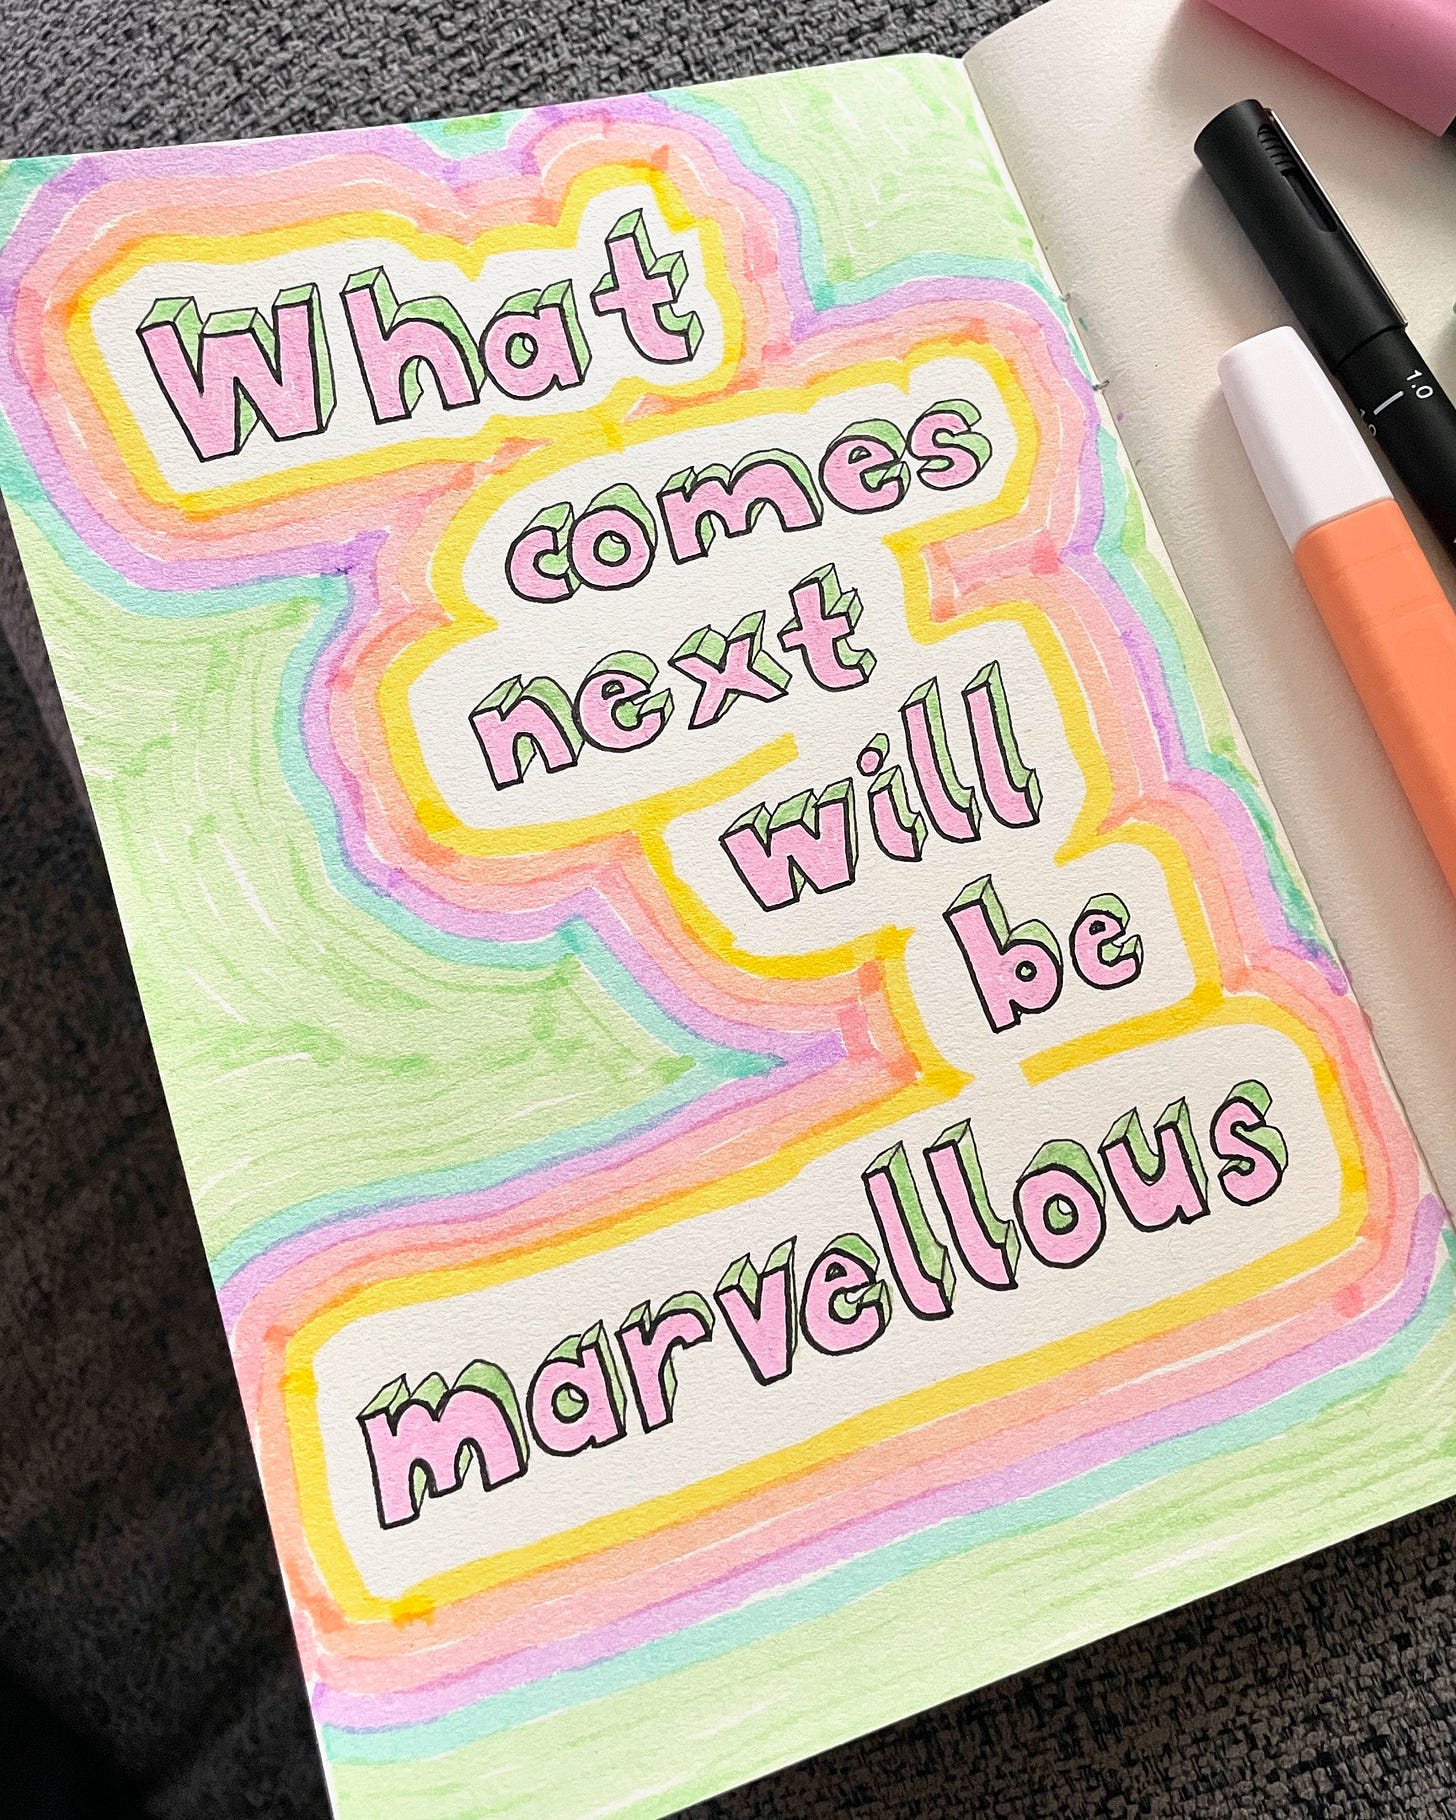 What
comes
next
will
be
marvellous
1.0